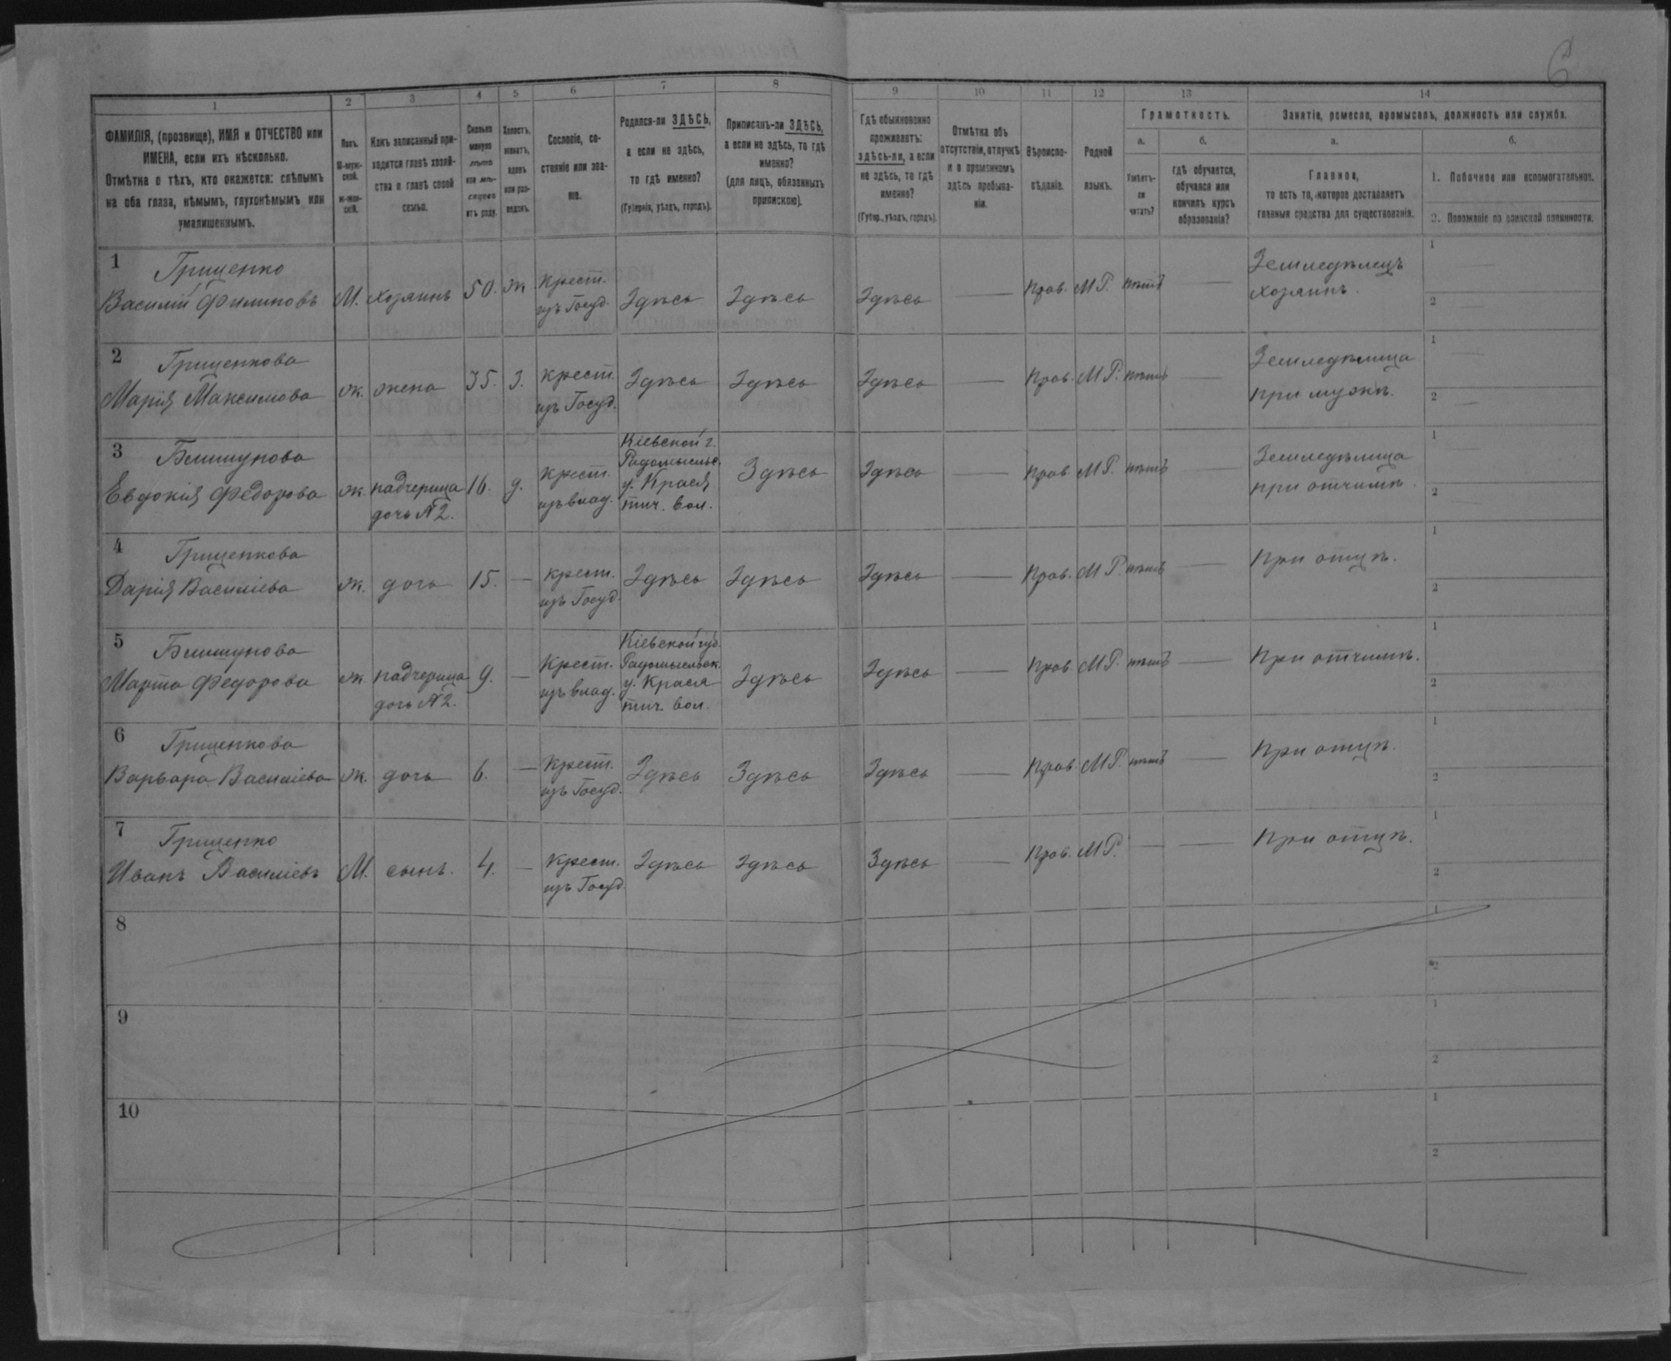 6
1 2 3 4 5 6 7 8 9 10 11 12 13 14
ФАМИЛІЯ, (прозвище), ИМЯ и ОТЧЕСТВО или
ИМЕНА, если ихъ нѣсколько.
Отмѣтка о тѣхъ, кто окажется: слѣпымъ
на оба глаза, нѣмымъ, глухонѣмымъ или
умалишеннымъ.
Полъ.
М-муж-
ской.
ж-жен-
скій.
Какъ записанный при-
ходится главѣ хозяй-
ства и главѣ своей
семьи.
Сколько
минуло
лѣтъ
или мѣ-
сяцевъ
отъ роду.
Холостъ,
женатъ,
вдовъ
или раз-
веденъ.
Сословіе, со-
стояніе или зва-
ніе.
Родился-ли ЗДѢСЬ,
а если не здѣсь,
то гдѣ именно?
(Губернія, уѣздъ, городъ).
Приписанъ-ли ЗДѢСЬ,
а если не здѣсь, то гдѣ
именно?
(для лицъ, обязанныхъ
припискою).
Гдѣ обыкновенно
проживаетъ:
здѣсь-ли, а если
не здѣсь, то гдѣ
именно?
(Губер., уѣздъ, городъ).
Отмѣтка объ
отсутствіи, отлучкѣ
и о временномъ
здѣсь пребыва-
ніи.
Вѣроиспо-
вѣданіе.
Родной
языкъ.
Грамотность.
а.
Умѣетъ-
ли
читать?
б.
гдѣ обучается,
обучался или
кончилъ курсъ
образованія?
Занятіе, ремесло, промыселъ, должность или служба.
а.
Главное,
то есть то, которое доставляетъ
главныя средства для существованія.
б.
1. Побочное или вспомогательное.
2. Положеніе по воинской повинности.
1 Грищенко
Василій Филиповъ М. хозяинъ 50. ж Крест.
изъ Госуд. Здѣсь Здѣсь Здѣсь — Прав. М Р. нѣтъ — Земледѣлецъ
хозяинъ.
1 —
2 —
2 Грищенкова
Марія Максимова ж. жена 35. З. крест.
изъ Госуд. Здѣсь Здѣсь Здѣсь — Прав. М Р. нѣтъ — Земледѣлица
при мужѣ.
1 —
2 —
3
Евдокія Федорова ж. падчерица 16. д. крест.
дочь N2. изъ влад.
Кіевской г.
Радомысльс.
у.
тич. вол.
Здѣсь Здѣсь — Прав М Р. нѣтъ — Земледѣлица
при отчимѣ.
1 —
2 —
4 Грищенкова
Дарія Василіева ж. дочь 15. — крест.
изъ Госуд. Здѣсь Здѣсь Здѣсь — Прав. М Р. нѣтъ — При отцѣ.
1
2
5
Марта Федорова ж падчерица 9. — Крест.
дочь N2. изъ влад.
Кіевской губ.
Радомысльск.
у.
тич. вол.
Здѣсь Здѣсь — Прав. М Р. нѣтъ — При отчимѣ.
1
2
6 Грищенкова
Варвара Василіева ж. дочь 6. — Крест.
изъ Госуд. Здѣсь Здѣсь Здѣсь — Прав М Р. нѣтъ — При отцѣ.
1
2
7 Грищенко
Иванъ Василіевъ М. сынъ. 4. — Крест.
изъ Госуд. Здѣсь Здѣсь Здѣсь — Прав. М Р. — — При отцѣ.
1
2
8
1
2
9
1
2
10
1
2